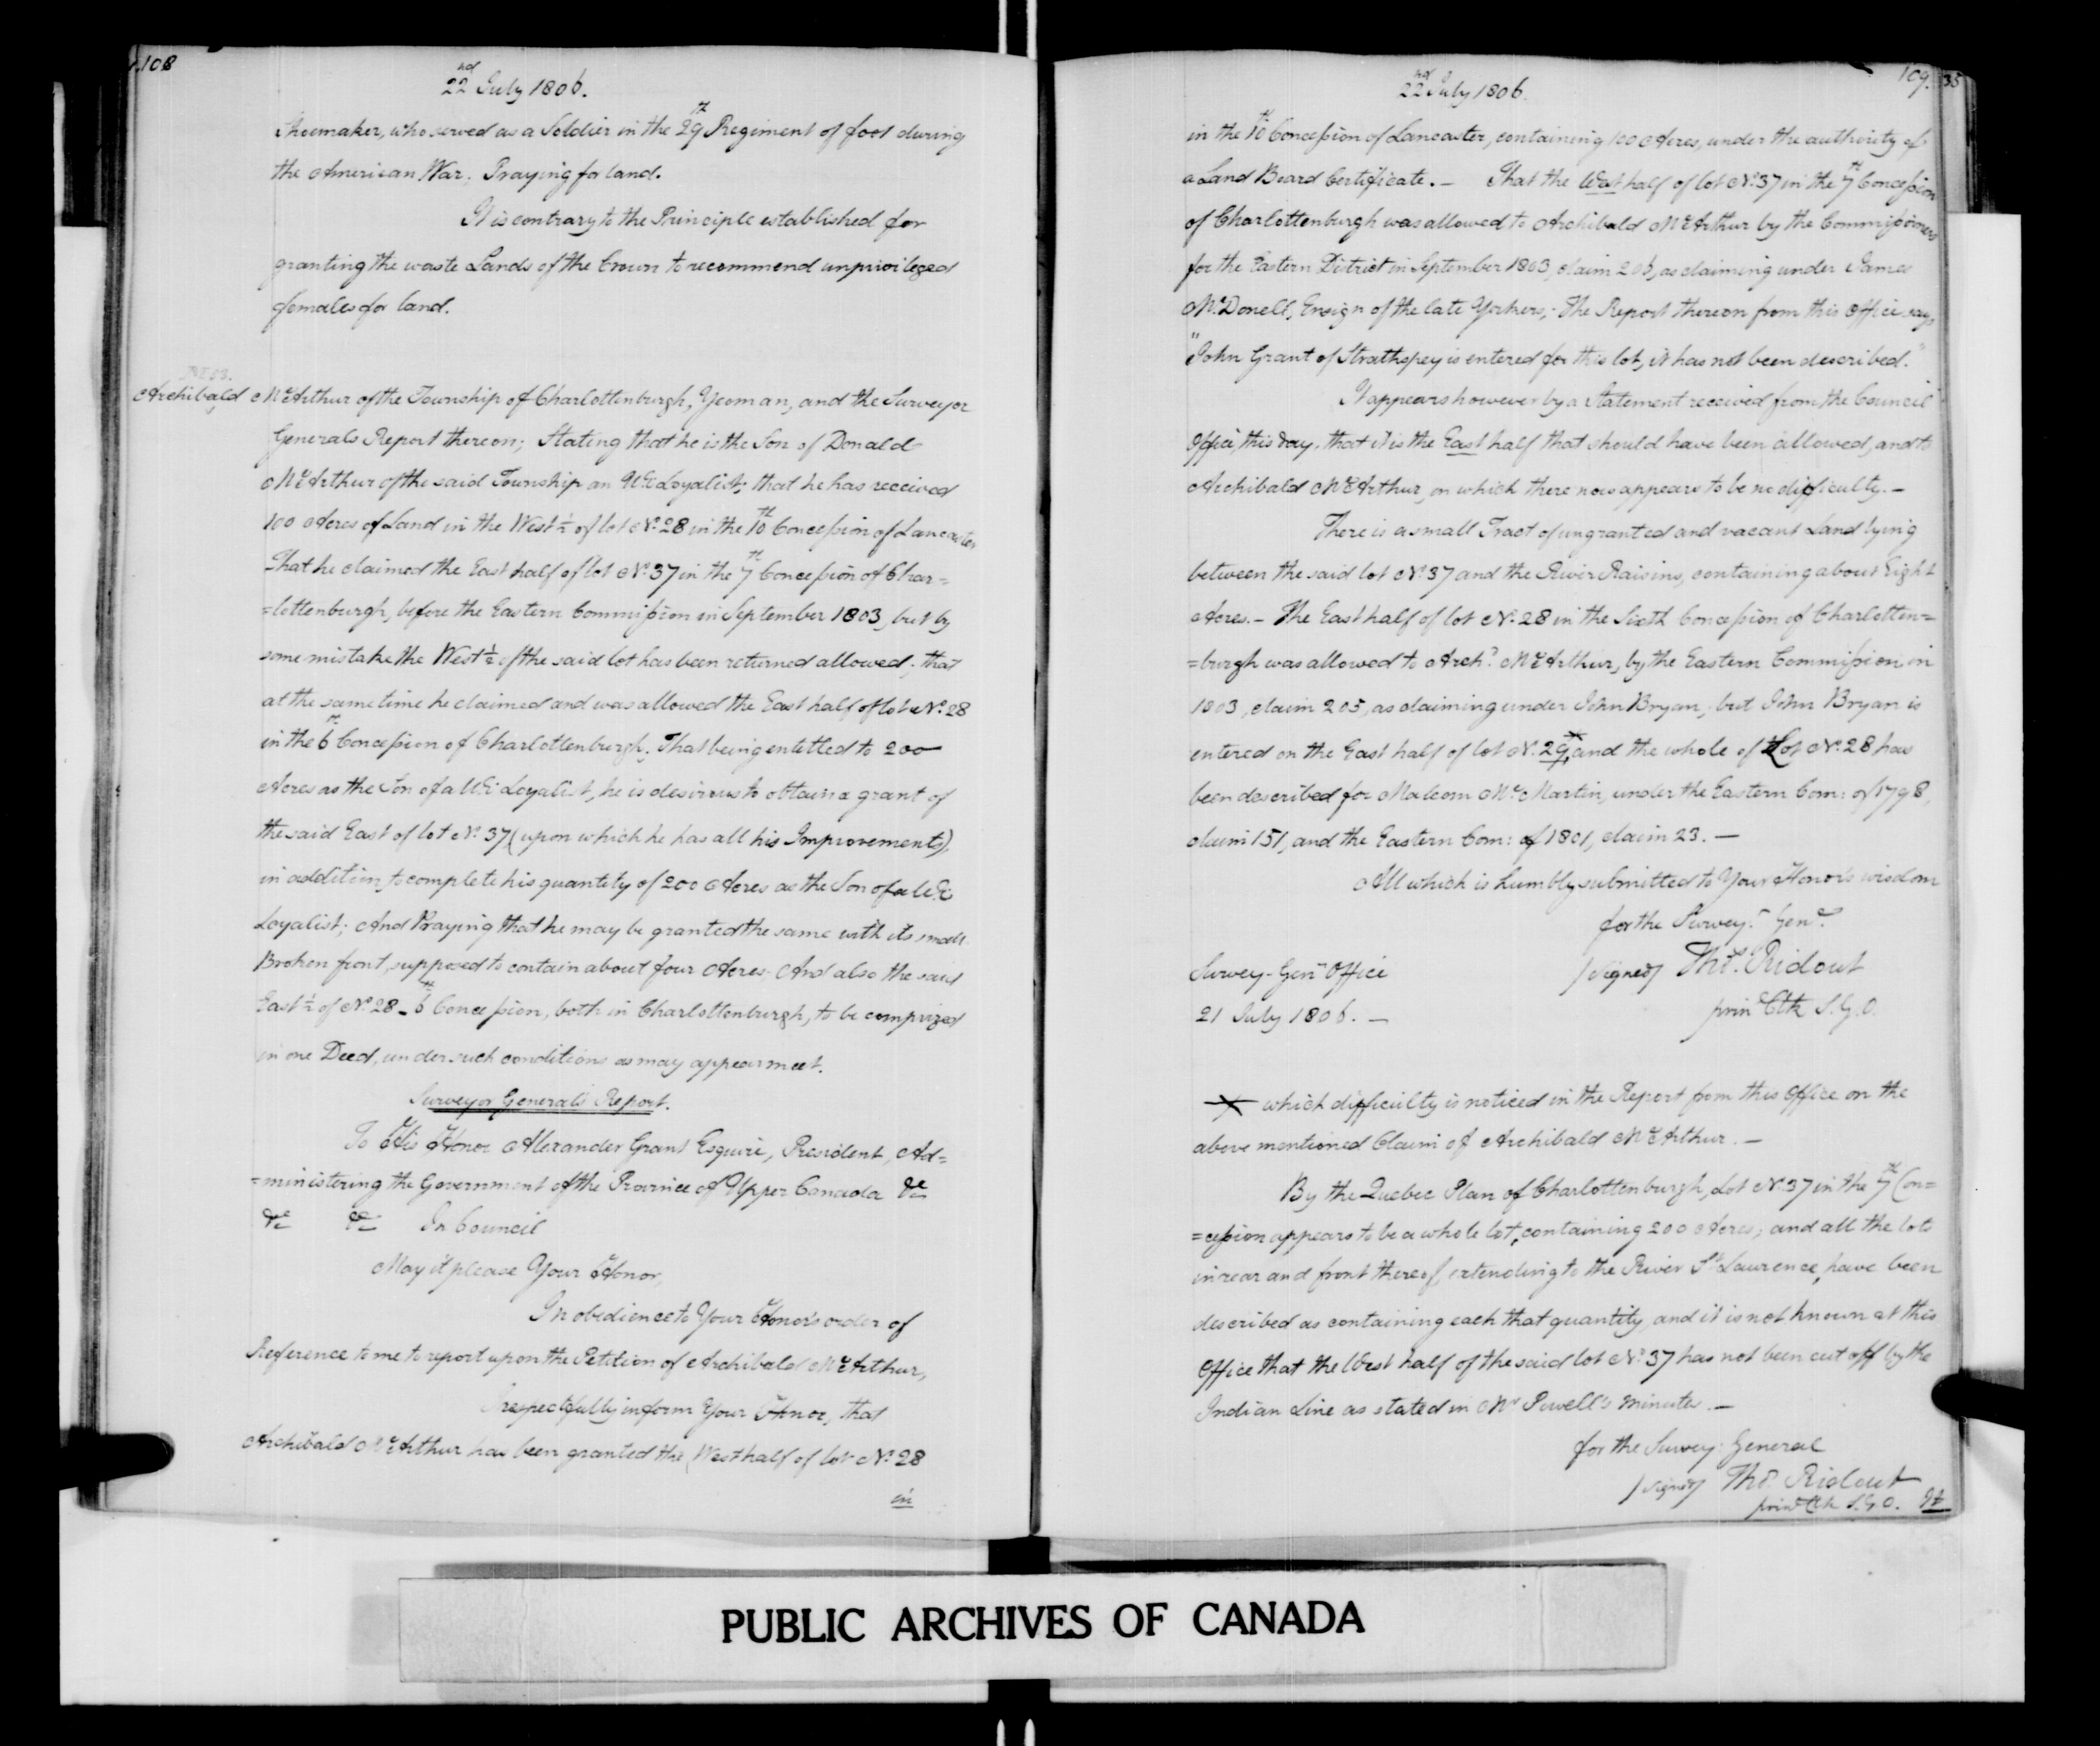 108
22nd July 1806.
Shoemaker, who served as a Soldier in the 29th Regiment of foot during
the American War. Praying for land.
It is contrary to the Principle established for
granting the waste Lands of the Crown to recommend unprivileged
females for land.
Archibald McArthur of the Township of Charlottenburgh, Yeoman, and the Surveyor
Generals Report thereon; Stating that he is the Son of Donald
McArthur of the said Township an U.E. Loyalist; that he has received
100 Acres of Land in the West ½ of lot No. 28 in the 10th Concession of Lancaster
That he claimed the East half of lot No. 37 in the 7th Concession of Char=
=lottenburgh, before the Eastern Commission in September 1803, but by
some mistake the West ½ of the said lot has been returned allowed; that
at the same time he claimed and was allowed the East half of lot No. 28
in the 6th Concession of Charlottenburgh. That being entitled to 200
Acres as the Son of a U.E. Loyalist, he is desirous to obtain a grant of
the said East of lot No. 37 (upon which he has all his Improvements),
in addition, to complete his quantity of 200 Acres as the Son of a U.E.
Loyalist; And Praying that he may be granted the same with its small
Broken front, supposed to contain about four Acres. And also the said
East ½ of No. 28 - 6th Concession, both in Charlottenburgh, to be comprized
in one Deed, under such conditions as may appear meet.
Surveyor General's Report.
To His Honor Alexander Grant Esquire, President, Ad=
=ministering the Government of the Province of Upper Canada &c
&c &c In Council
May it please Your Honor,
In obedience to Your Honor's order of
Reference to me to report upon the Petition of Archibald McArthur,
I respectfully inform Your Honor, that
Archibald McArthur has been granted the West half of lot No. 28
in
109. 35
22nd July 1806.
in the 10th Concession of Lancaster, containing 100 Acres, under the authority of
a Land Board Certificate. — That the West half of lot No. 37 in the 7th Concession
of Charlottenburgh was allowed to Archibald McArthur by the Commissioners
for the Eastern District in September 1803, claim 206, as claiming under James
McDonell, Ensign of the late Yorkers; The Report thereon from this Office says
"John Grant of Strathspey is entered for this lot, it has not been described."
It appears however by a Statement received from the Council
Office, this day, that it is the East half that should have been allowed, and to
Archibald McArthur, on which there now appears to be no difficulty. —
There is a small Tract of ungranted and vacant Land lying
between the said lot No. 37 and the River Raisins, containing about Eight
Acres. — The East half of lot No. 28 in the Sixth Concession of Charlotten=
=burgh was allowed to Archd. McArthur, by the Eastern Commission in
1803, claim 205, as claiming under John Bryan, but John Bryan is
entered on the East half of lot No. 29,* and the whole of Lot No. 28 has
been described for Malcom McMartin, under the Eastern Com: of 1798,
claim 151, and the Eastern Com: of 1801, claim 23. —
All which is humbly submitted to Your Honor's wisdom
for the Surveyr. Genl.
Survey. Genl. Office
/signed/ Thos. Ridout
21 July 1806. —
prinl. Clk S.G.O.
* which difficulty is noticed in the Report from this Office on the
above mentioned Claim of Archibald McArthur. —
By the Quebec Plan of Charlottenburgh, Lot No. 37 in the 7th Con=
=cession appears to be a whole lot, containing 200 Acres; and all the lots
in rear and front thereof, extending to the River St. Lawrence, have been
described as containing each that quantity, and it is not known at this
Office that the West half of the said lot No. 37 has not been cut off by the
Indian Line as stated in Mr Powell's minutes. —
for the Survey. General
/signed/ Thos. Ridout
prinl. Clk S.G.O. It
PUBLIC ARCHIVES OF CANADA